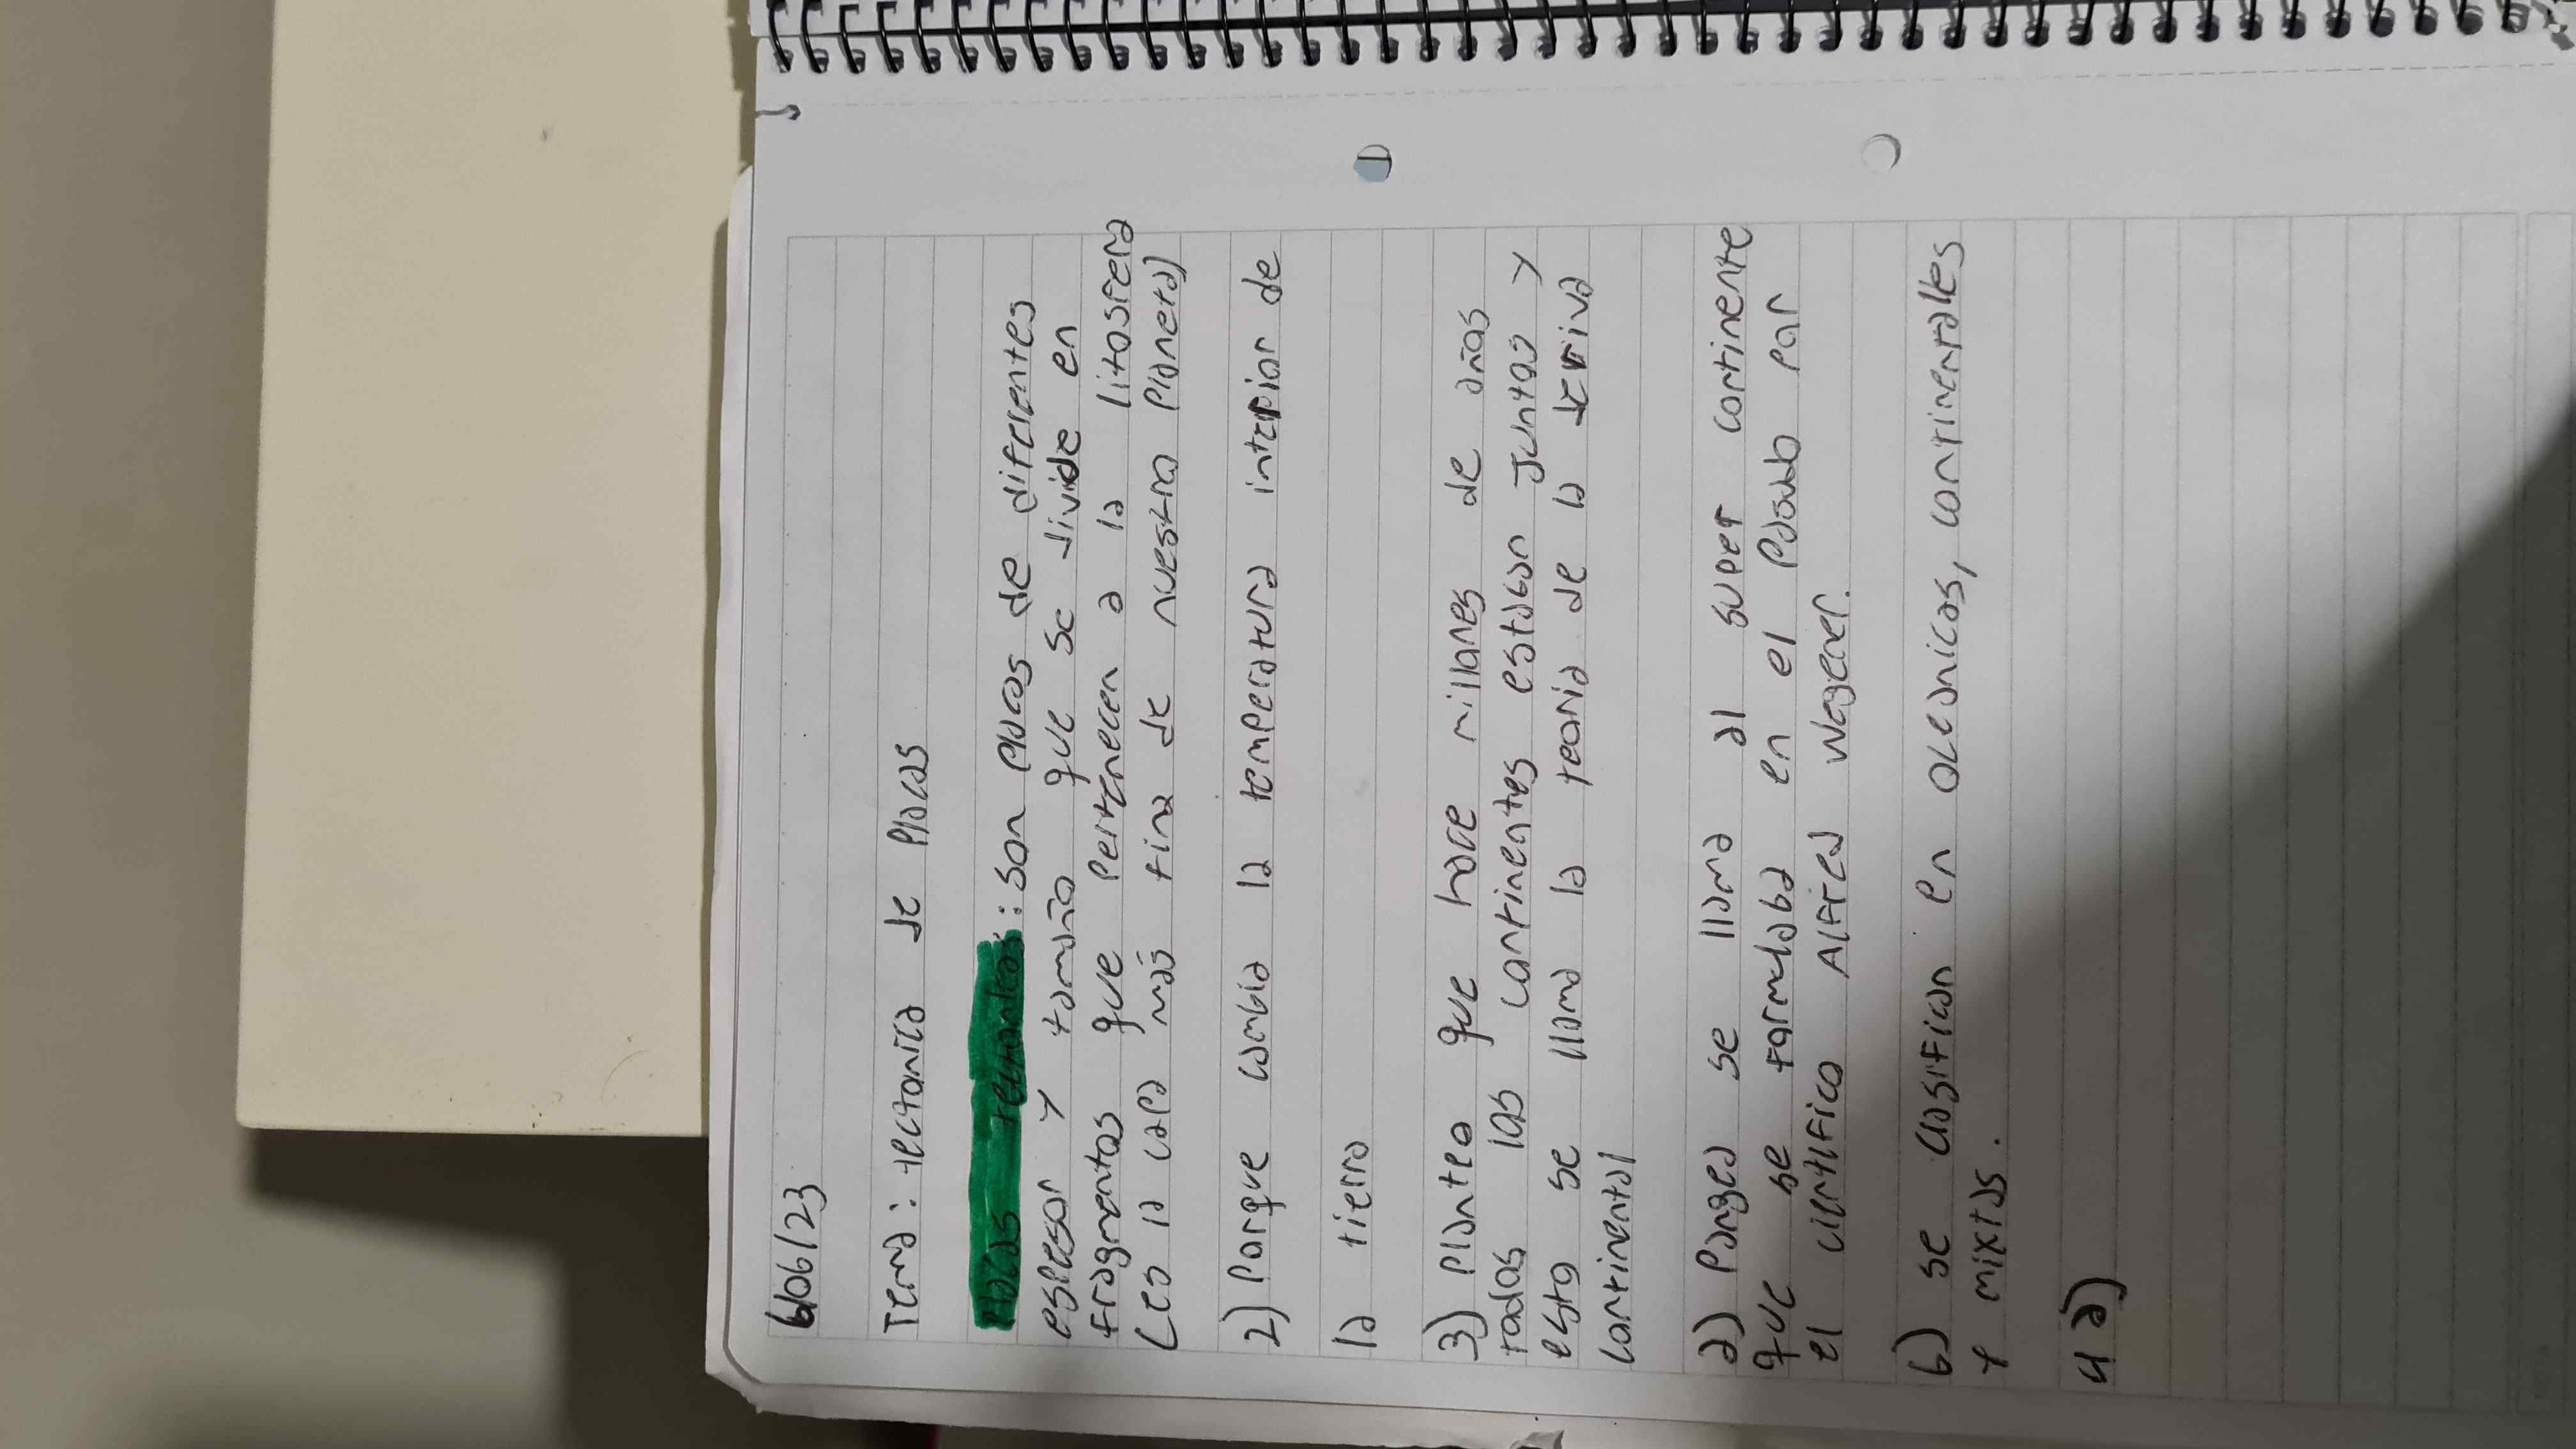 6/06/23
Tema: tectonica de placas
Placas tectonicas: son placas de diferentes
espesor y tamaño que se divide en
fragmentos que pertenecen a la litosfera
(es la capa más fina de nuestro planeta)
2) Porque cambia la temperatura interior de
la tierra
3) Planteo que hace millones de años
todos los continentes estaban juntos y
esto se llama la teoria de la deriva
continental
a) Pangea se llama al super continente
que se formaba en el pasado por
el cientifico Alfred Wegener.
b) se clasifican en oceanicas, continentales
y mixtas.
4 a)